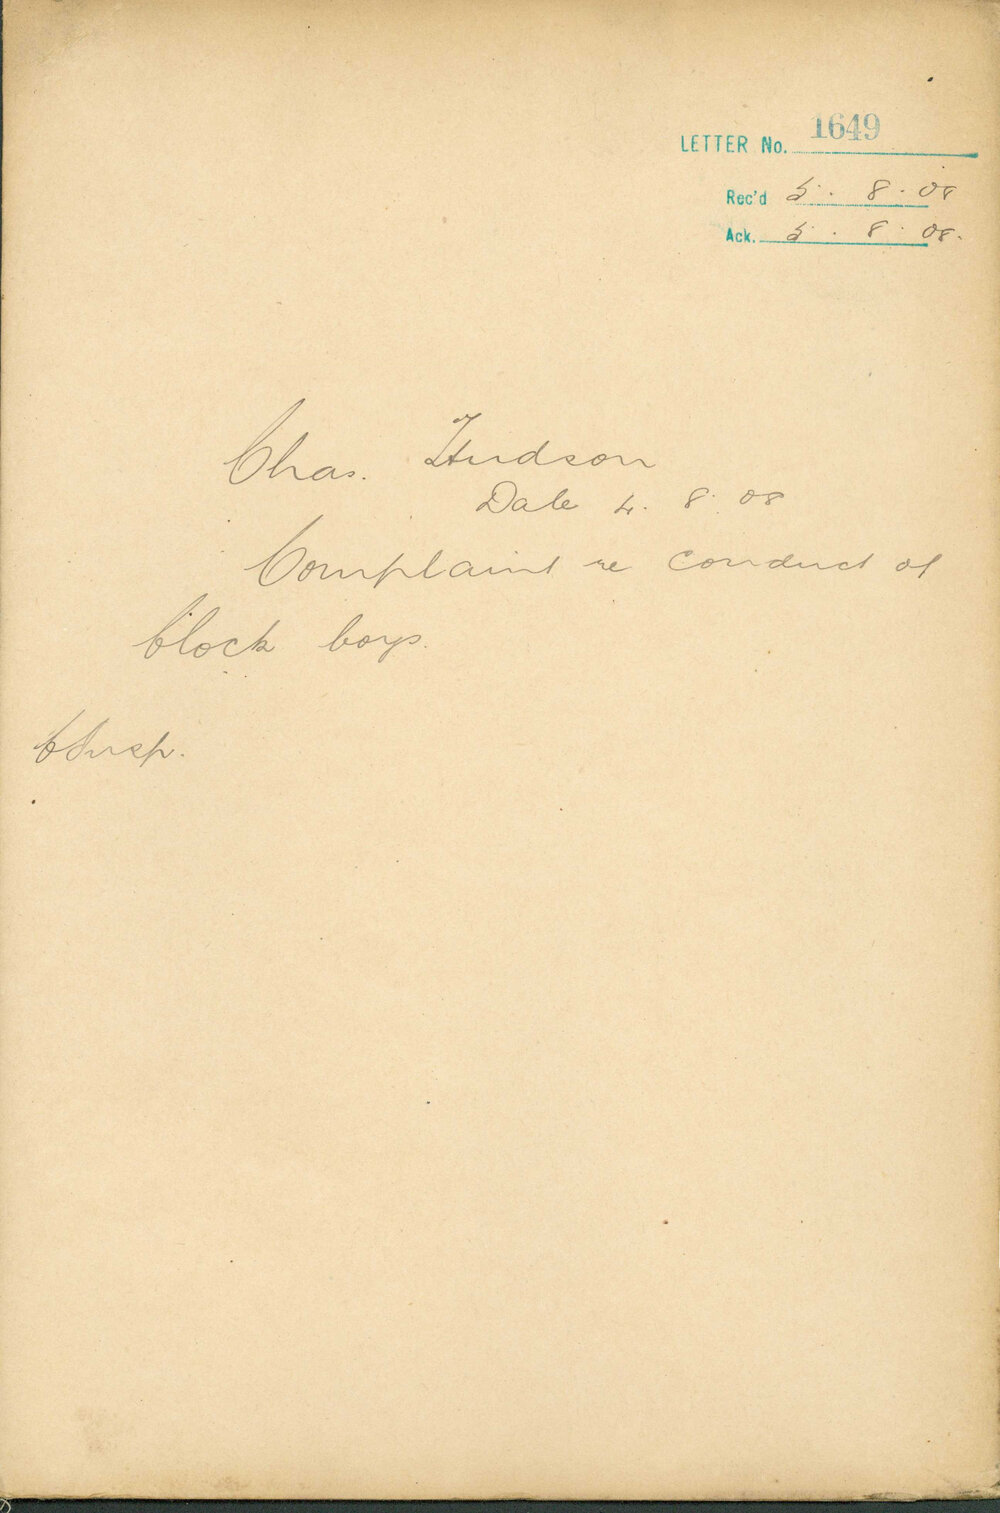 LETTER No. 1649
Rec'd 5. 8. 08
Ack. 5. 8. 08.
Chas. Hudson
Date 4. 8. 08
Complaint re conduct of
block boys.
C Insp.